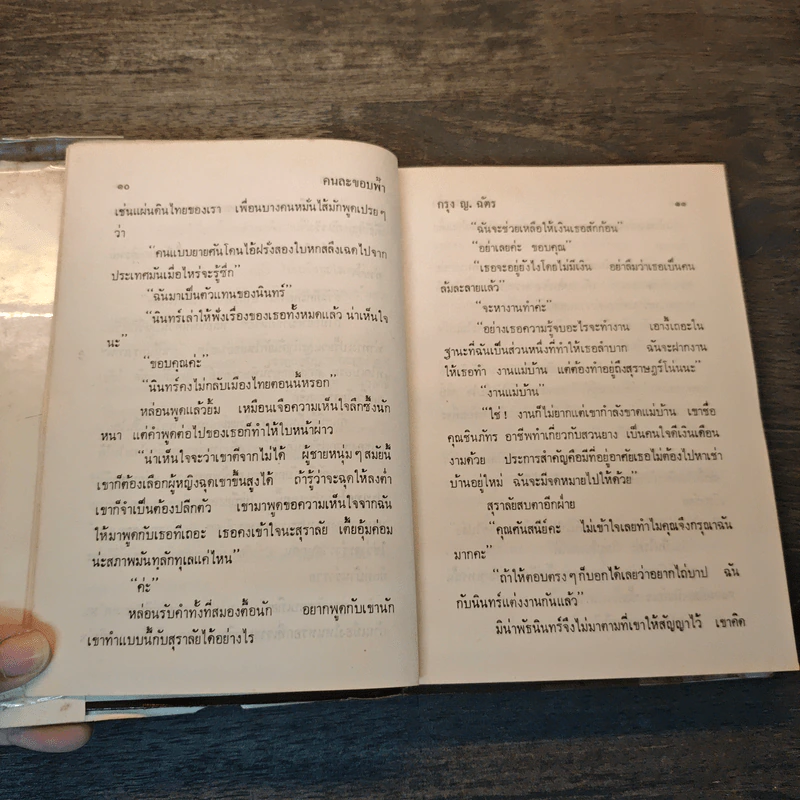 ๑๐ คนละขอบฟ้า
เช่นแผ่นดินไทยของเรา เพื่อนบางคนหมั่นไส้มักพูดเปรยๆ
ว่า
“คนแบบยายคันโดนไอ้ฝรั่งสองใบหกสลึงเฉดไปจาก
ประเทศมันเมื่อไหร่จะรู้ซึก”
“ฉันมาเป็นตัวแทนของนินทร์”
“นินทร์เล่าให้ฟังเรื่องของเธอทั้งหมดแล้ว น่าเห็นใจ
นะ”
“ขอบคุณค่ะ”
“นินทร์คงไม่กลับเมืองไทยตอนนี้หรอก”
หล่อนพูดแล้วยิ้ม เหมือนเจือความเห็นใจลึกซึ้งนัก
หนา แต่คำพูดต่อไปของเธอก็ทำให้ใบหน้าผ่าว
“น่าเห็นใจจะว่าเขาที่จากไม่ได้ ผู้ชายหนุ่มๆ สมัยนี้
เขาก็ต้องเลือกผู้หญิงฉุดเขาขึ้นสูงได้ ถ้ารู้ว่าจะฉุดให้ลงต่ำ
เขาก็จำเป็นต้องปลีกตัว เขามาพูดขอความเห็นใจจากฉัน
ให้มาพูดกับเธอทีเถอะ เธอคงเข้าใจนะสุราลัย เตี้ยอุ้มค่อม
น่ะสภาพมันทุลักทุเลแค่ไหน”
“ค่ะ”
หล่อนรับคำทั้งที่สมองตื้อนัก อยากพูดกับเขานัก
เขาทำแบบนี้กับสุราลัยได้อย่างไร
กรุง ญ. ฉัตร ๑๑
“ฉันจะช่วยเหลือให้เงินเธอสักก้อน”
“อย่าเลยค่ะ ขอบคุณ”
“เธอจะอยู่ยังไงโดยไม่มีเงิน อย่าลืมว่าเธอเป็นคน
ล้มละลายแล้ว”
“จะหางานทำค่ะ”
“อย่างเธอความรู้จบอะไรจะทำงาน เอางี้เถอะใน
ฐานะที่ฉันเป็นส่วนหนึ่งที่ทำให้เธอลำบาก ฉันจะฝากงาน
ให้เธอทำ งานแม่บ้าน แต่ต้องทำอยู่ถึงสุราษฎร์โน่นนะ”
“งานแม่บ้าน”
“ใช่! งานก็ไม่ยากแต่เขากำลังขาดแม่บ้าน เขาชื่อ
คุณชินภัทร อาชีพทำเกี่ยวกับสวนยาง เป็นคนใจดีเงินเดือน
งามด้วย ประการสำคัญคือมีที่อยู่อาศัยเธอไม่ต้องไปหาเช่า
บ้านอยู่ใหม่ ฉันจะมีจดหมายไปให้ด้วย”
สุราลัยสบตาอีกฝ่าย
“คุณศันสนีย์คะ ไม่เข้าใจเลยทำไมคุณจึงกรุณาฉัน
มากคะ”
“ถ้าให้ตอบตรงๆ ก็บอกได้เลยว่าอยากไถ่บาป ฉัน
กับนินทร์แต่งงานกันแล้ว”
มิน่าพัธนินทร์จึงไม่มาตามที่เขาให้สัญญาไว้ เขาคิด